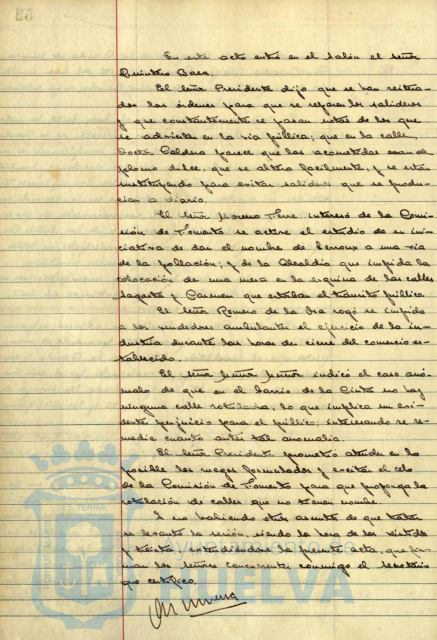 En este acto entró en el salón el señor
Quintero Baez.
El señor Presidente dijo que se han reitera-
dos las órdenes para que se reparen los salideros
y que constantemente se pasan notas de los que
se advierten en la vía pública; que en la calle
Doctor Caldera parece que las acometidas eran de
plomo dulce, que se altera facilmente, y se están
sustituyendo para evitar salideros que se produ-
cian a diario.
El señor Moreno interesó de la Comi-
sión de Fomento se active el estudio de su ini-
ciativa de dar el nombre de Lerroux a una vía
de la población; y de la Alcaldía que impida la
colocación de una mesa en la esquina de las calles
Sagasta y Carmen que estorban el tránsito público.
El señor Romero de la Osa rogó se impida
a los vendedores ambulantes el ejercicio de la in-
dustria durante las horas de cierre del comercio es-
tablecido.
El señor Muñoz Muñoz indicó el caso anó-
malo de que en el barrio de la Cinta no hay
ninguna calle rotulada, lo que implica un evi-
dente perjuicio para el público; interesando se re-
medie cuanto antes tal anomalia.
El señor Presidente prometió atender en lo
posible los ruegos formulados y excitar el celo
de la Comisión de Fomento para que proponga la
rotulación de calles que no tienen nombre.
Y no habiendo otros asuntos de que tratar
se levantó la sesión, siendo la hora de las veintidos
y treinta, extendiéndose la presente acta, que fir-
man los señores concurrentes conmigo el Secretario
que certifico.
HUELVA